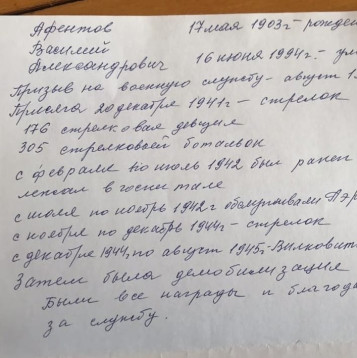 Афентов 17 мая 1903 г - рожден
Василий
Александрович 16 июня 1994г. - ум
Призыв на военную службу - август 1
Присяга 20 декабря 1941г - стрелок
176 стрелковая дивизия
305 стрелковый батальон
с февраля по июль 1942 был ранен
лежал в госпитале
с июля по ноябрь 1942 г обслуживали Аэр
с ноября по декабрь 1944г - стрелок
с декабря 1944г по август 1945г - Вилковит
Затем была демобилизация
Были все награды и благода
за службу.